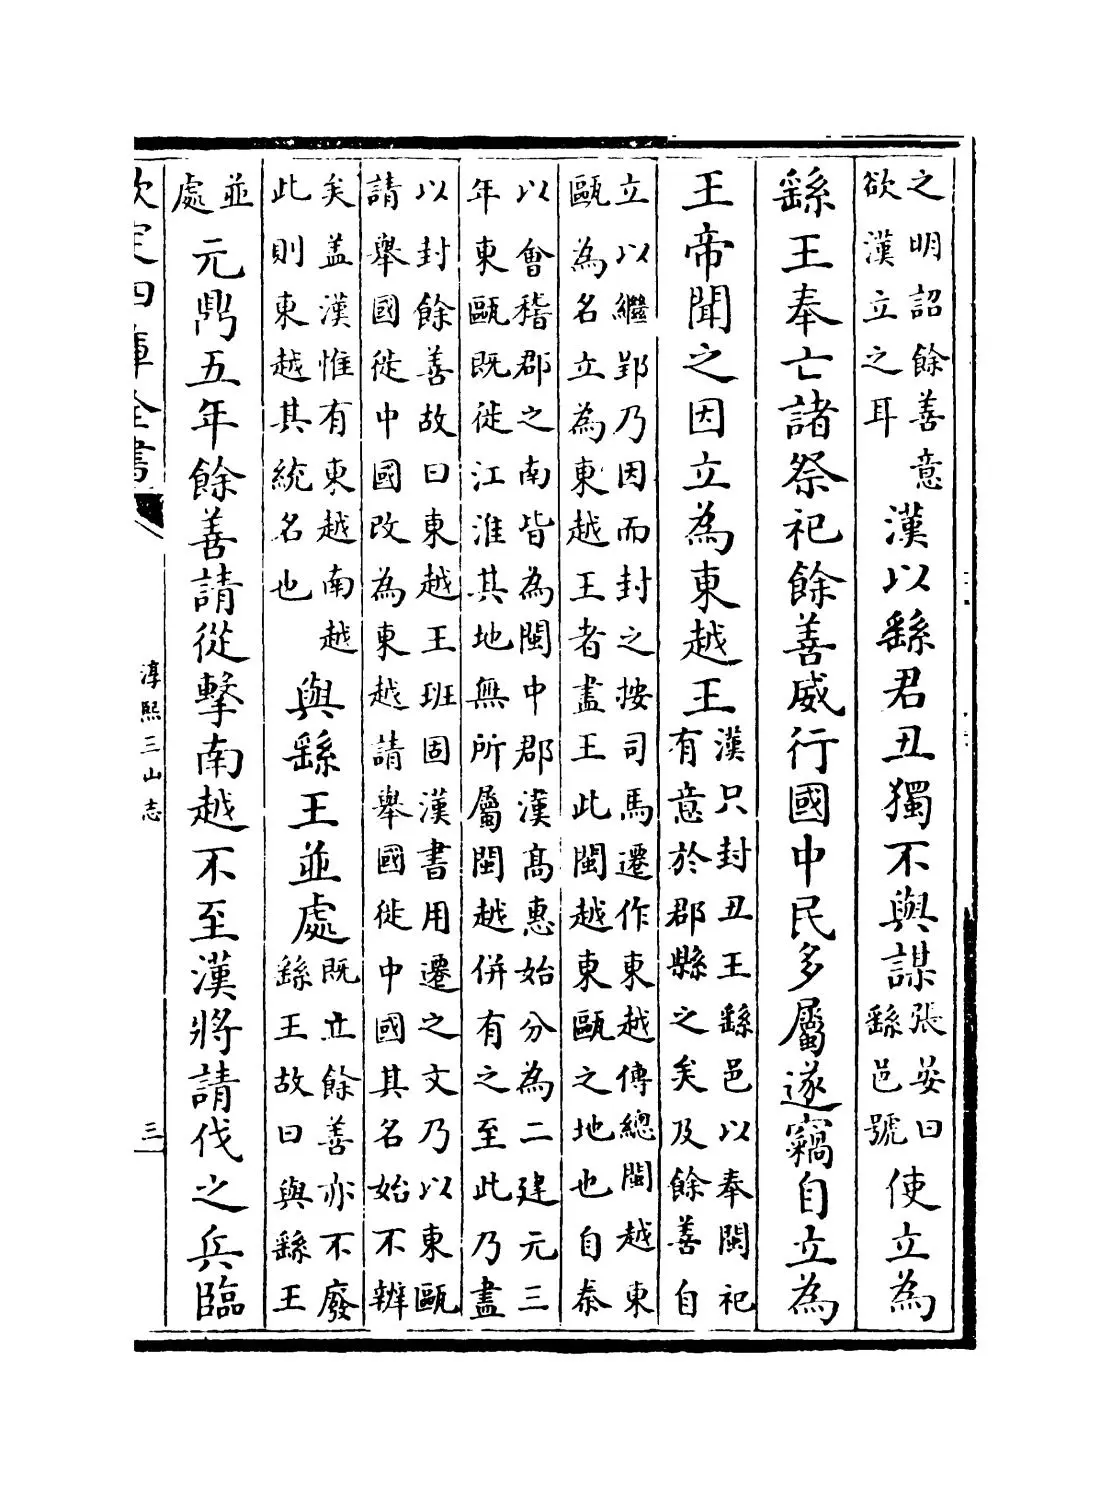 之明詔餘善意
欲漢立之耳
漢以繇君丑獨不與謀
張晏曰
繇邑號
使立為
繇王奉亡諸祭祀餘善威行國中民多屬遂竊自立為
王帝聞之因立為東越王
漢只封丑王繇邑以奉閩祀
有意於郡縣之矣及餘善自
立以繼郢乃因而封之按司馬遷作東越傳總閩越東
甌為名立為東越王者盡王此閩越東甌之地也自秦
以會稽郡之南皆為閩中郡漢髙惠始分為二建元三
年東甌既徙江淮其地無所屬閩越併有之至此乃盡
以封餘善故曰東越王班固漢書用遷之文乃以東甌
請舉國徙中國改為東越請舉國徙中國其名始不辨
矣盖漢惟有東越南越
此則東越其統名也
與繇王並處
既立餘善亦不廢
繇王故曰與繇王
並
處
元鼎五年餘善請從擊南越不至漢將請伐之兵臨
欽定四庫全書
淳熙三山志
三